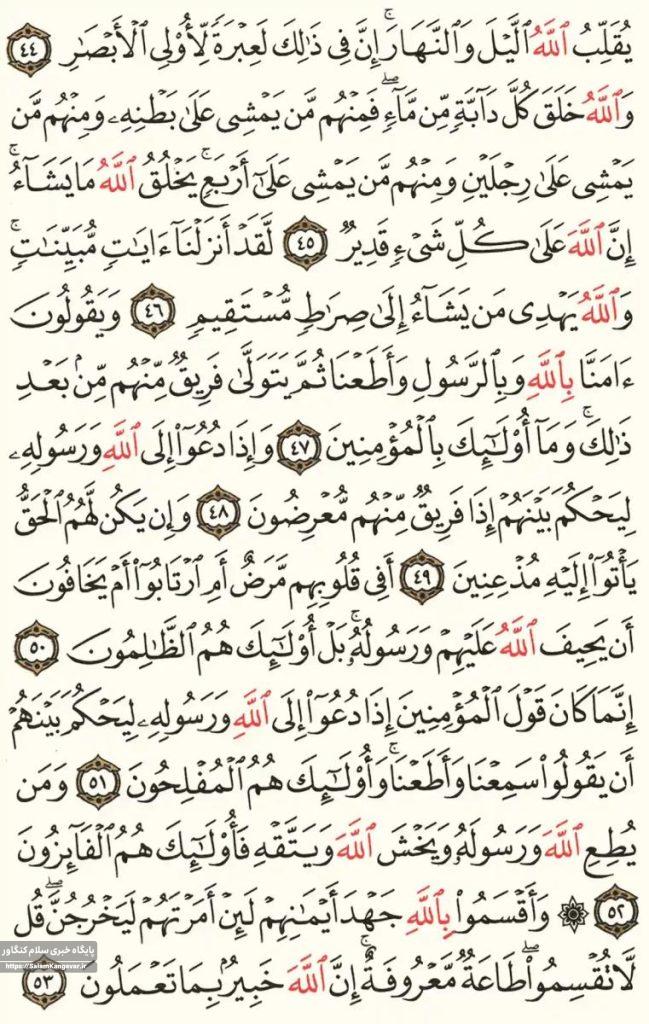 يُقَلِّبُ ٱللَّهُ ٱلَّيۡلَ وَٱلنَّهَارَۚ إِنَّ فِي ذَٰلِكَ لَعِبۡرَةٗ لِّأُوْلِي ٱلۡأَبۡصَٰرِ ٤٤
وَٱللَّهُ خَلَقَ كُلَّ دَآبَّةٖ مِّن مَّآءٖۖ فَمِنۡهُم مَّن يَمۡشِي عَلَىٰ بَطۡنِهِۦ وَمِنۡهُم مَّن
يَمۡشِي عَلَىٰ رِجۡلَيۡنِ وَمِنۡهُم مَّن يَمۡشِي عَلَىٰٓ أَرۡبَعٖۚ يَخۡلُقُ ٱللَّهُ مَا يَشَآءُۚ
إِنَّ ٱللَّهَ عَلَىٰ كُلِّ شَيۡءٖ قَدِيرٞ ٤٥ لَّقَدۡ أَنزَلۡنَآ ءَايَٰتٖ مُّبَيِّنَٰتٖۚ
وَٱللَّهُ يَهۡدِي مَن يَشَآءُ إِلَىٰ صِرَٰطٖ مُّسۡتَقِيمٖ ٤٦ وَيَقُولُونَ
ءَامَنَّا بِٱللَّهِ وَبِٱلرَّسُولِ وَأَطَعۡنَا ثُمَّ يَتَوَلَّىٰ فَرِيقٞ مِّنۡهُم مِّنۢ بَعۡدِ
ذَٰلِكَۚ وَمَآ أُوْلَٰٓئِكَ بِٱلۡمُؤۡمِنِينَ ٤٧ وَإِذَا دُعُوٓاْ إِلَى ٱللَّهِ وَرَسُولِهِۦ
لِيَحۡكُمَ بَيۡنَهُمۡ إِذَا فَرِيقٞ مِّنۡهُم مُّعۡرِضُونَ ٤٨ وَإِن يَكُن لَّهُمُ ٱلۡحَقُّ
يَأۡتُوٓاْ إِلَيۡهِ مُذۡعِنِينَ ٤٩ أَفِي قُلُوبِهِم مَّرَضٌ أَمِ ٱرۡتَابُوٓاْ أَمۡ يَخَافُونَ
أَن يَحِيفَ ٱللَّهُ عَلَيۡهِمۡ وَرَسُولُهُۥۚ بَلۡ أُوْلَٰٓئِكَ هُمُ ٱلظَّٰلِمُونَ ٥٠
إِنَّمَا كَانَ قَوۡلَ ٱلۡمُؤۡمِنِينَ إِذَا دُعُوٓاْ إِلَى ٱللَّهِ وَرَسُولِهِۦ لِيَحۡكُمَ بَيۡنَهُمۡ
أَن يَقُولُواْ سَمِعۡنَا وَأَطَعۡنَاۚ وَأُوْلَٰٓئِكَ هُمُ ٱلۡمُفۡلِحُونَ ٥١ وَمَن
يُطِعِ ٱللَّهَ وَرَسُولَهُۥ وَيَخۡشَ ٱللَّهَ وَيَتَّقۡهِ فَأُوْلَٰٓئِكَ هُمُ ٱلۡفَآئِزُونَ
٥٢ ۞ وَأَقۡسَمُواْ بِٱللَّهِ جَهۡدَ أَيۡمَٰنِهِمۡ لَئِنۡ أَمَرۡتَهُمۡ لَيَخۡرُجُنَّۖ قُل
لَّا تُقۡسِمُواْۖ طَاعَةٞ مَّعۡرُوفَةٌۚ إِنَّ ٱللَّهَ خَبِيرُۢ بِمَا تَعۡمَلُونَ ٥٣
پایگاه خبری سلام کنگاور
https://SalamKangevar.ir